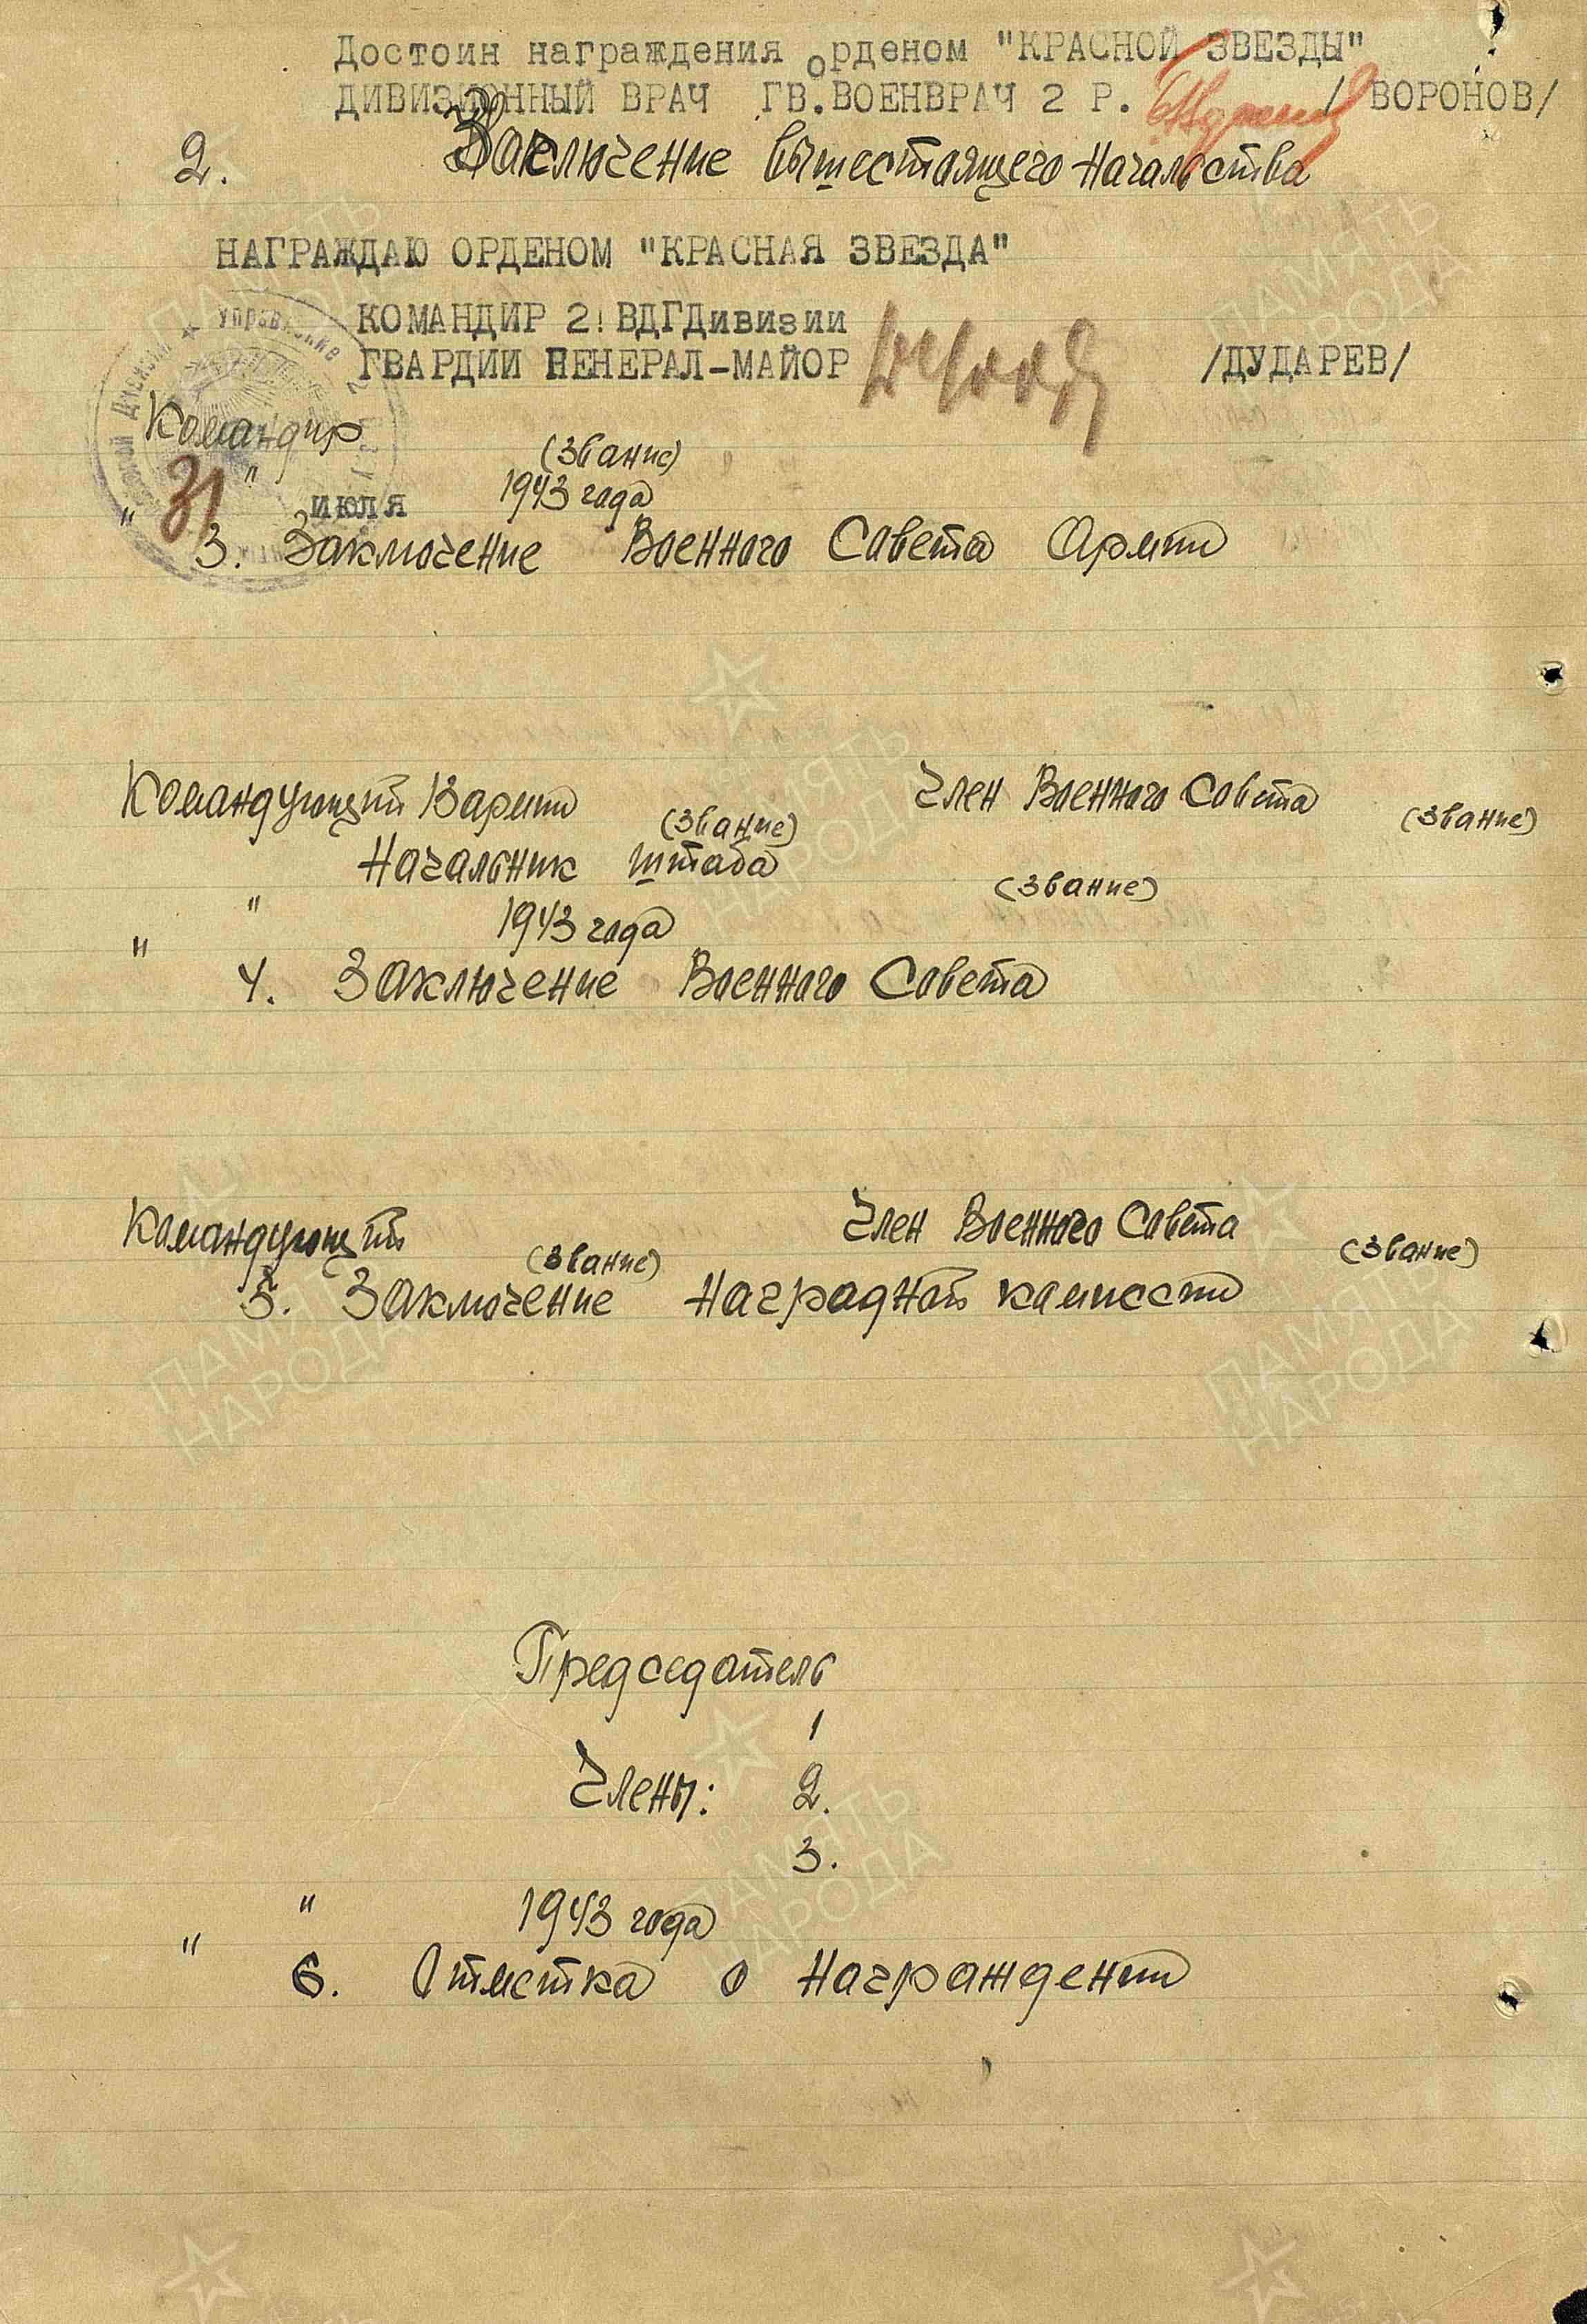 Достоин награждения орденом "КРАСНОЙ ЗВЕЗДЫ"
ДИВИЗИОННЫЙ ВРАЧ ГВ.ВОЕНВРАЧ 2 Р. /ВОРОНОВ/
2. Заключение вышестоящего начальства
НАГРАЖДАЮ ОРДЕНОМ "КРАСНАЯ ЗВЕЗДА"
КОМАНДИР 2! ВДГДивизии
ГВАРДИИ ГЕНЕРАЛ-МАЙОР /ДУДАРЕВ/
Командир (звание)
" 31 " июля 1943 года
3. Заключение Военного Совета Армии
Командующий Армии (звание) Член Военного Совета (звание)
Начальник штаба (звание)
" " 1943 года
4. Заключение Военного Совета
Командующий (звание) Член Военного Совета (звание)
5. Заключение Наградной комиссии
Председатель
1
Члены: 2.
3.
" " 1943 года
6. Отметка о награждении
ПАМЯТЬ НАРОДА